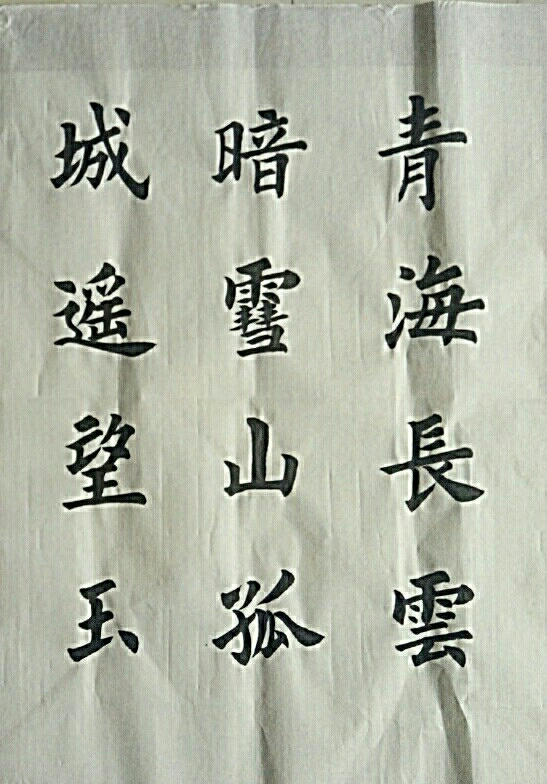 青海長雲
暗雪山孤
城遥望玉